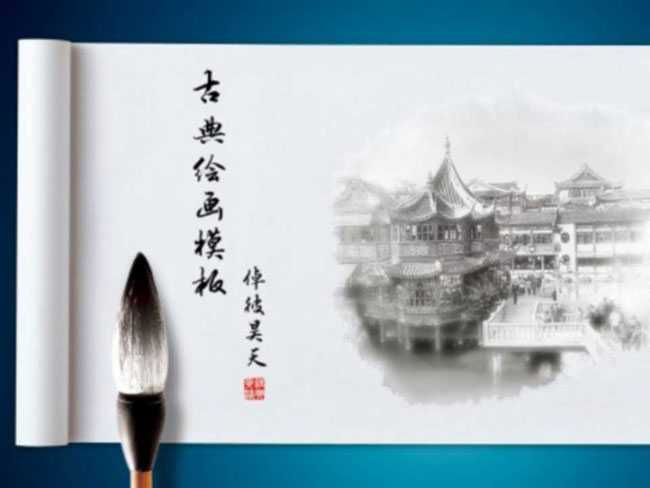 古典绘画模板
倬彼昊天